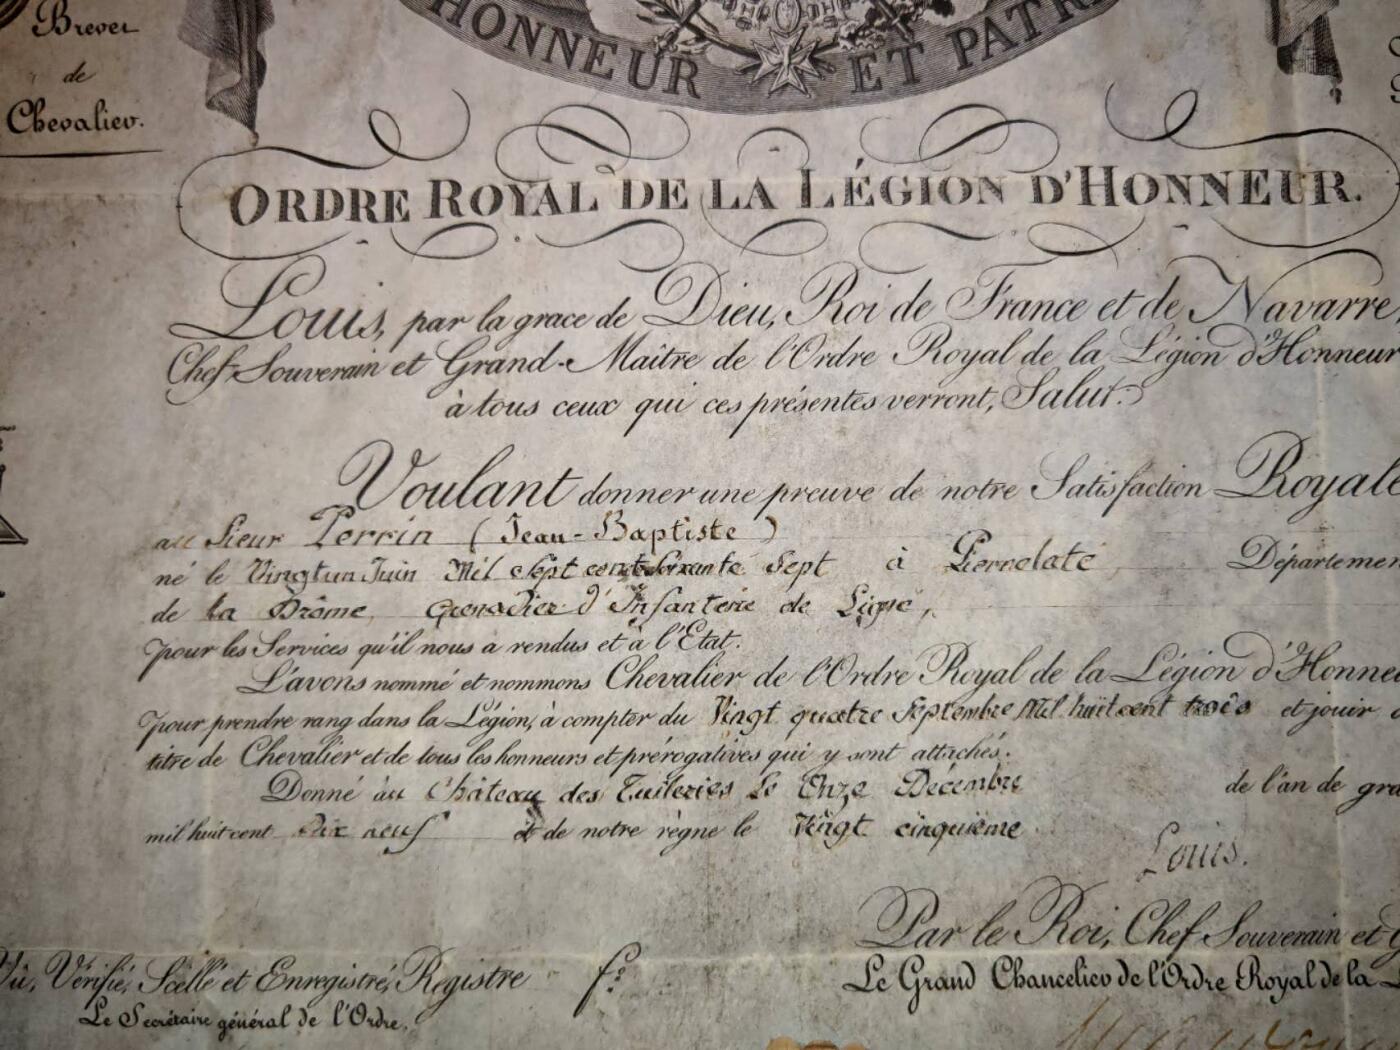 Brevet
de
Chevalier.
HONNEUR ET PATR
ORDRE ROYAL DE LA LÉGION D'HONNEUR.
Louis, par la grace de Dieu, Roi de France et de Navarre,
Chef Souverain et Grand-Maître de l'Ordre Royal de la Légion d'Honneur
à tous ceux qui ces présentes verront, Salut.
Voulant donner une preuve de notre Satisfaction Royale
au Sieur Perrin (Jean-Baptiste)
né le Vingt un Juin Mil Sept cent Soixante Sept à Pierrelate Départemen
de la Drôme, Grenadier d'Infanterie de Ligne,
pour les Services qu'il nous a rendus et à l'Etat.
L'avons nommé et nommons Chevalier de l'Ordre Royal de la Légion d'Honne
pour prendre rang dans la Légion, à compter du Vingt quatre Septembre Mil huit cent trois et jouir
titre de Chevalier et de tous les honneurs et prérogatives qui y sont attachés.
Donné au Château des Tuileries Le Onze Décembre de l'an de gra
mil huit cent Dix neuf et de notre règne le Vingt cinquième
Louis.
Par le Roi, Chef Souverain et G
Vû, Vérifié, Scellé et Enregistré, Registre f.º
Le Grand Chancelier de l'Ordre Royal de la
Le Secrétaire général de l'Ordre,